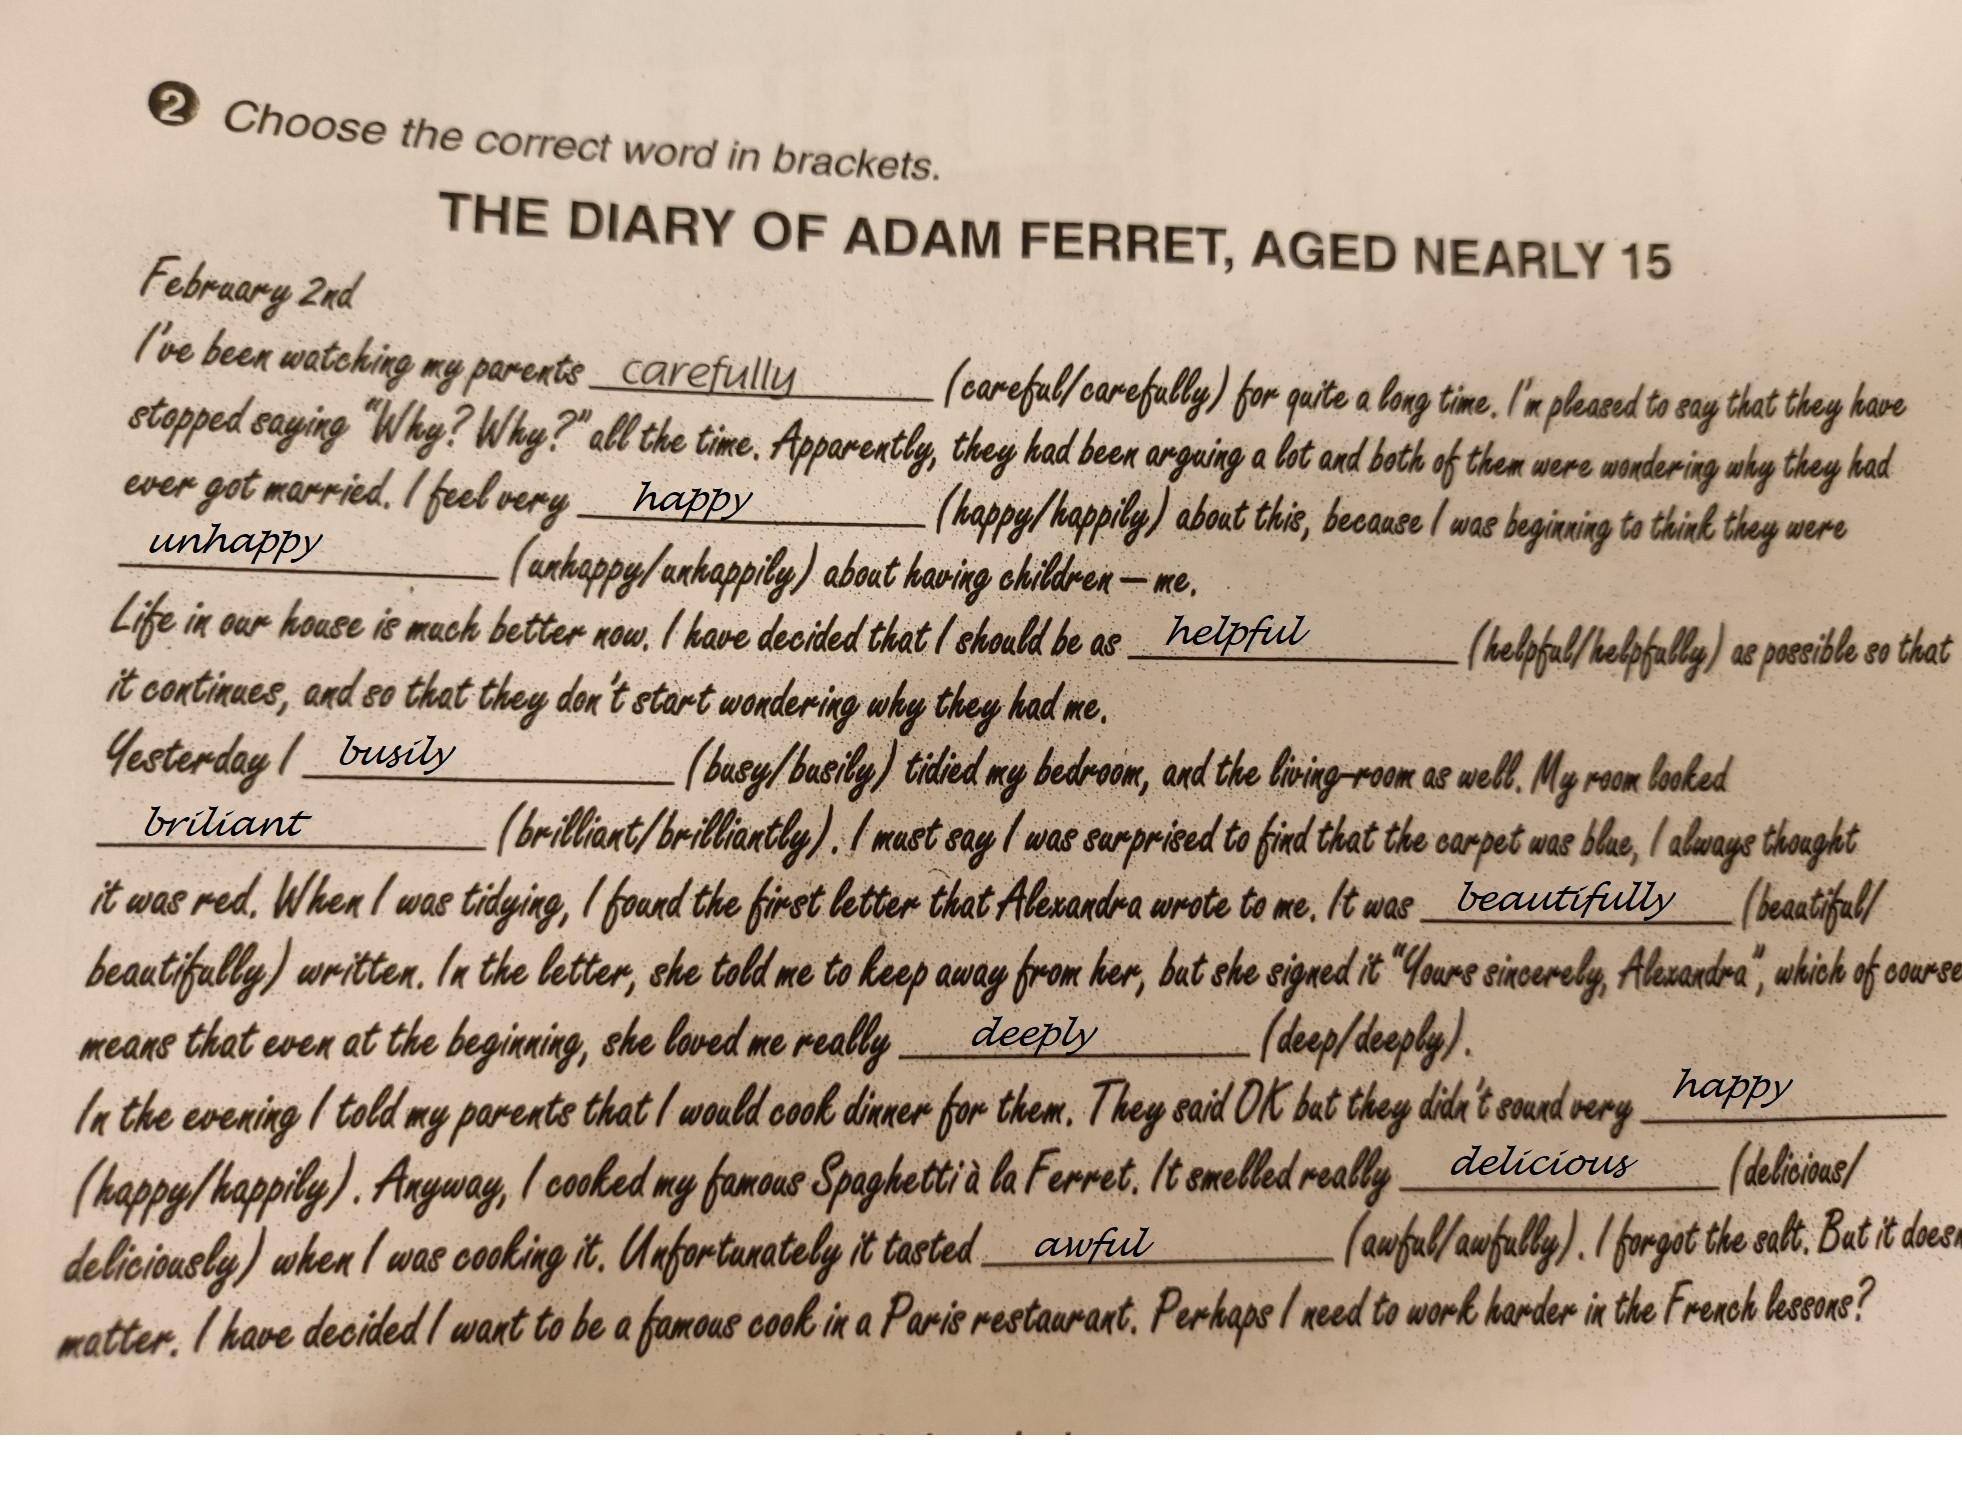 2 Choose the correct word in brackets.
THE DIARY OF ADAM FERRET, AGED NEARLY 15
February 2nd
I've been watching my parents carefully (careful/carefully) for quite a long time. I'm pleased to say that they have
stopped saying "Why? Why?" all the time. Apparently, they had been arguing a lot and both of them were wondering why they had
ever got married. I feel very happy (happy/happily) about this, because I was beginning to think they were
unhappy (unhappy/unhappily) about having children — me.
Life in our house is much better now. I have decided that I should be as helpful (helpful/helpfully) as possible so that
it continues, and so that they don't start wondering why they had me.
Yesterday I busily (busy/busily) tidied my bedroom, and the living-room as well. My room looked
briliant (brilliant/brilliantly). I must say I was surprised to find that the carpet was blue, I always thought
it was red. When I was tidying, I found the first letter that Alexandra wrote to me. It was beautifully (beautiful/
beautifully) written. In the letter, she told me to keep away from her, but she signed it "Yours sincerely, Alexandra", which of course
means that even at the beginning, she loved me really deeply (deep/deeply).
In the evening I told my parents that I would cook dinner for them. They said OK but they didn't sound very happy
(happy/happily). Anyway, I cooked my famous Spaghetti à la Ferret. It smelled really delicious (delicious/
deliciously) when I was cooking it. Unfortunately it tasted awful (awful/awfully). I forgot the salt. But it doesn
matter. I have decided I want to be a famous cook in a Paris restaurant. Perhaps I need to work harder in the French lessons?